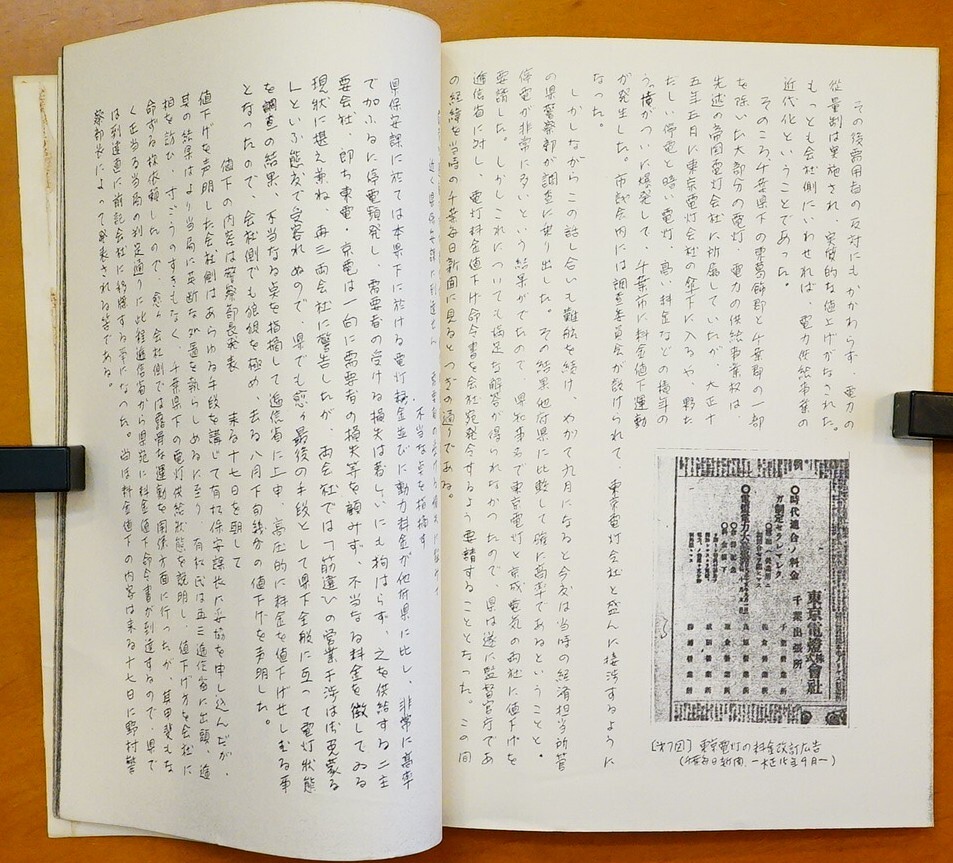 その後需用者の反対にもかかわらず、電力の
従量制は実施され、実質的な値上げがなされた。
もっとも会社側にいわせれば、電力供給事業の
近代化ということであった。
そのころ、千葉県下の東葛飾郡と千葉郡の一部
を除いた大部分の電灯、電力の供給事業权は
先述の帝国電灯会社に所属していたが、大正十
五年五月に東京電灯会社の傘下に入るや、野た
たしい停電と暗い電灯、高い料金などの積年の
うっ憤がついに爆発して、千葉市に料金値下運動
が発生した。市試会内には調査委員会が設けられて、東京電灯会社と盛んに接渉するように
なった。
しかしながらこの話し合いも難航を続け、やがて九月になると今度は当時の経済担当所管
の県警察部が調査に乗り出した。その結果他府県に比較して確に高率であるということと、
停電が非常に多いという結果がでたので、県知事名で東京電灯と京成電気の両社に値下げを
要請した。しかしこれについても満足な解答が得られなかったので、県は遂に監督官庁であ
逓信省に対し、電灯料金値下げ命令書を会社宛発令するよう要請することとなった。この間
の経緯を当時の千葉毎日新聞に見るとつぎの通りである。
東京電燈株式會社
千葉出張所
◎時代適合ノ料金
ガ制定セラレマシタ
〔オ7図〕東京電灯の料金改訂広告
（千葉毎日新聞、一大正15年9月一）
不当な点を指摘す
県保安課に於ては本県下に於ける電灯料金並びに動力料金が他府県に比し、非常に高率
で加ふるに停電頻発し、需要者の受ける損失は著しいにも拘はらず、之を供給する二主
要会社、即ち東電・京電は一向に需要者の損失等を顧みず、不当なる料金を徴してゐる
現状に堪え兼ね、再三両会社に警告したが、両会社では「筋違ひの営業干渉は御免蒙る
」といふ態度で受容れぬので、県でも愈々最後の手段として県下全般に亙って電灯状態
を調査の結果、不当なる点を指摘して逓信省に上申、高圧的に料金を値下げせしむる事
となったので、会社側でも狼狽を極め、去る八月下旬幾分の値下げを声明した。
値下の内容は警察部長発表 来る十七日を期して
値下げを声明した会社側はあらゆる手段を講じて有松保安課長に妥協を申し込んだが、
其の結果はより当局に英断な処置を執らしめるに至り、有松氏は五三逓信省に出頭、逓
相を訪ひ、寸ごうのすきもなく、千葉県下の電灯供給状態を説明し、値下げ方を会社に
命ずる様依頼したので、愈々会社側では露骨な運動を関係方面に行ったが、其甲斐もな
く正当なる当局の判定通りに此程逓信省から県宛に料金値下命令書が到達するので、県で
は到達直に前記会社に移牒する事になった。尚ほ料金値下の内容は来る十七日に野村警
察部長によって発表される筈である。